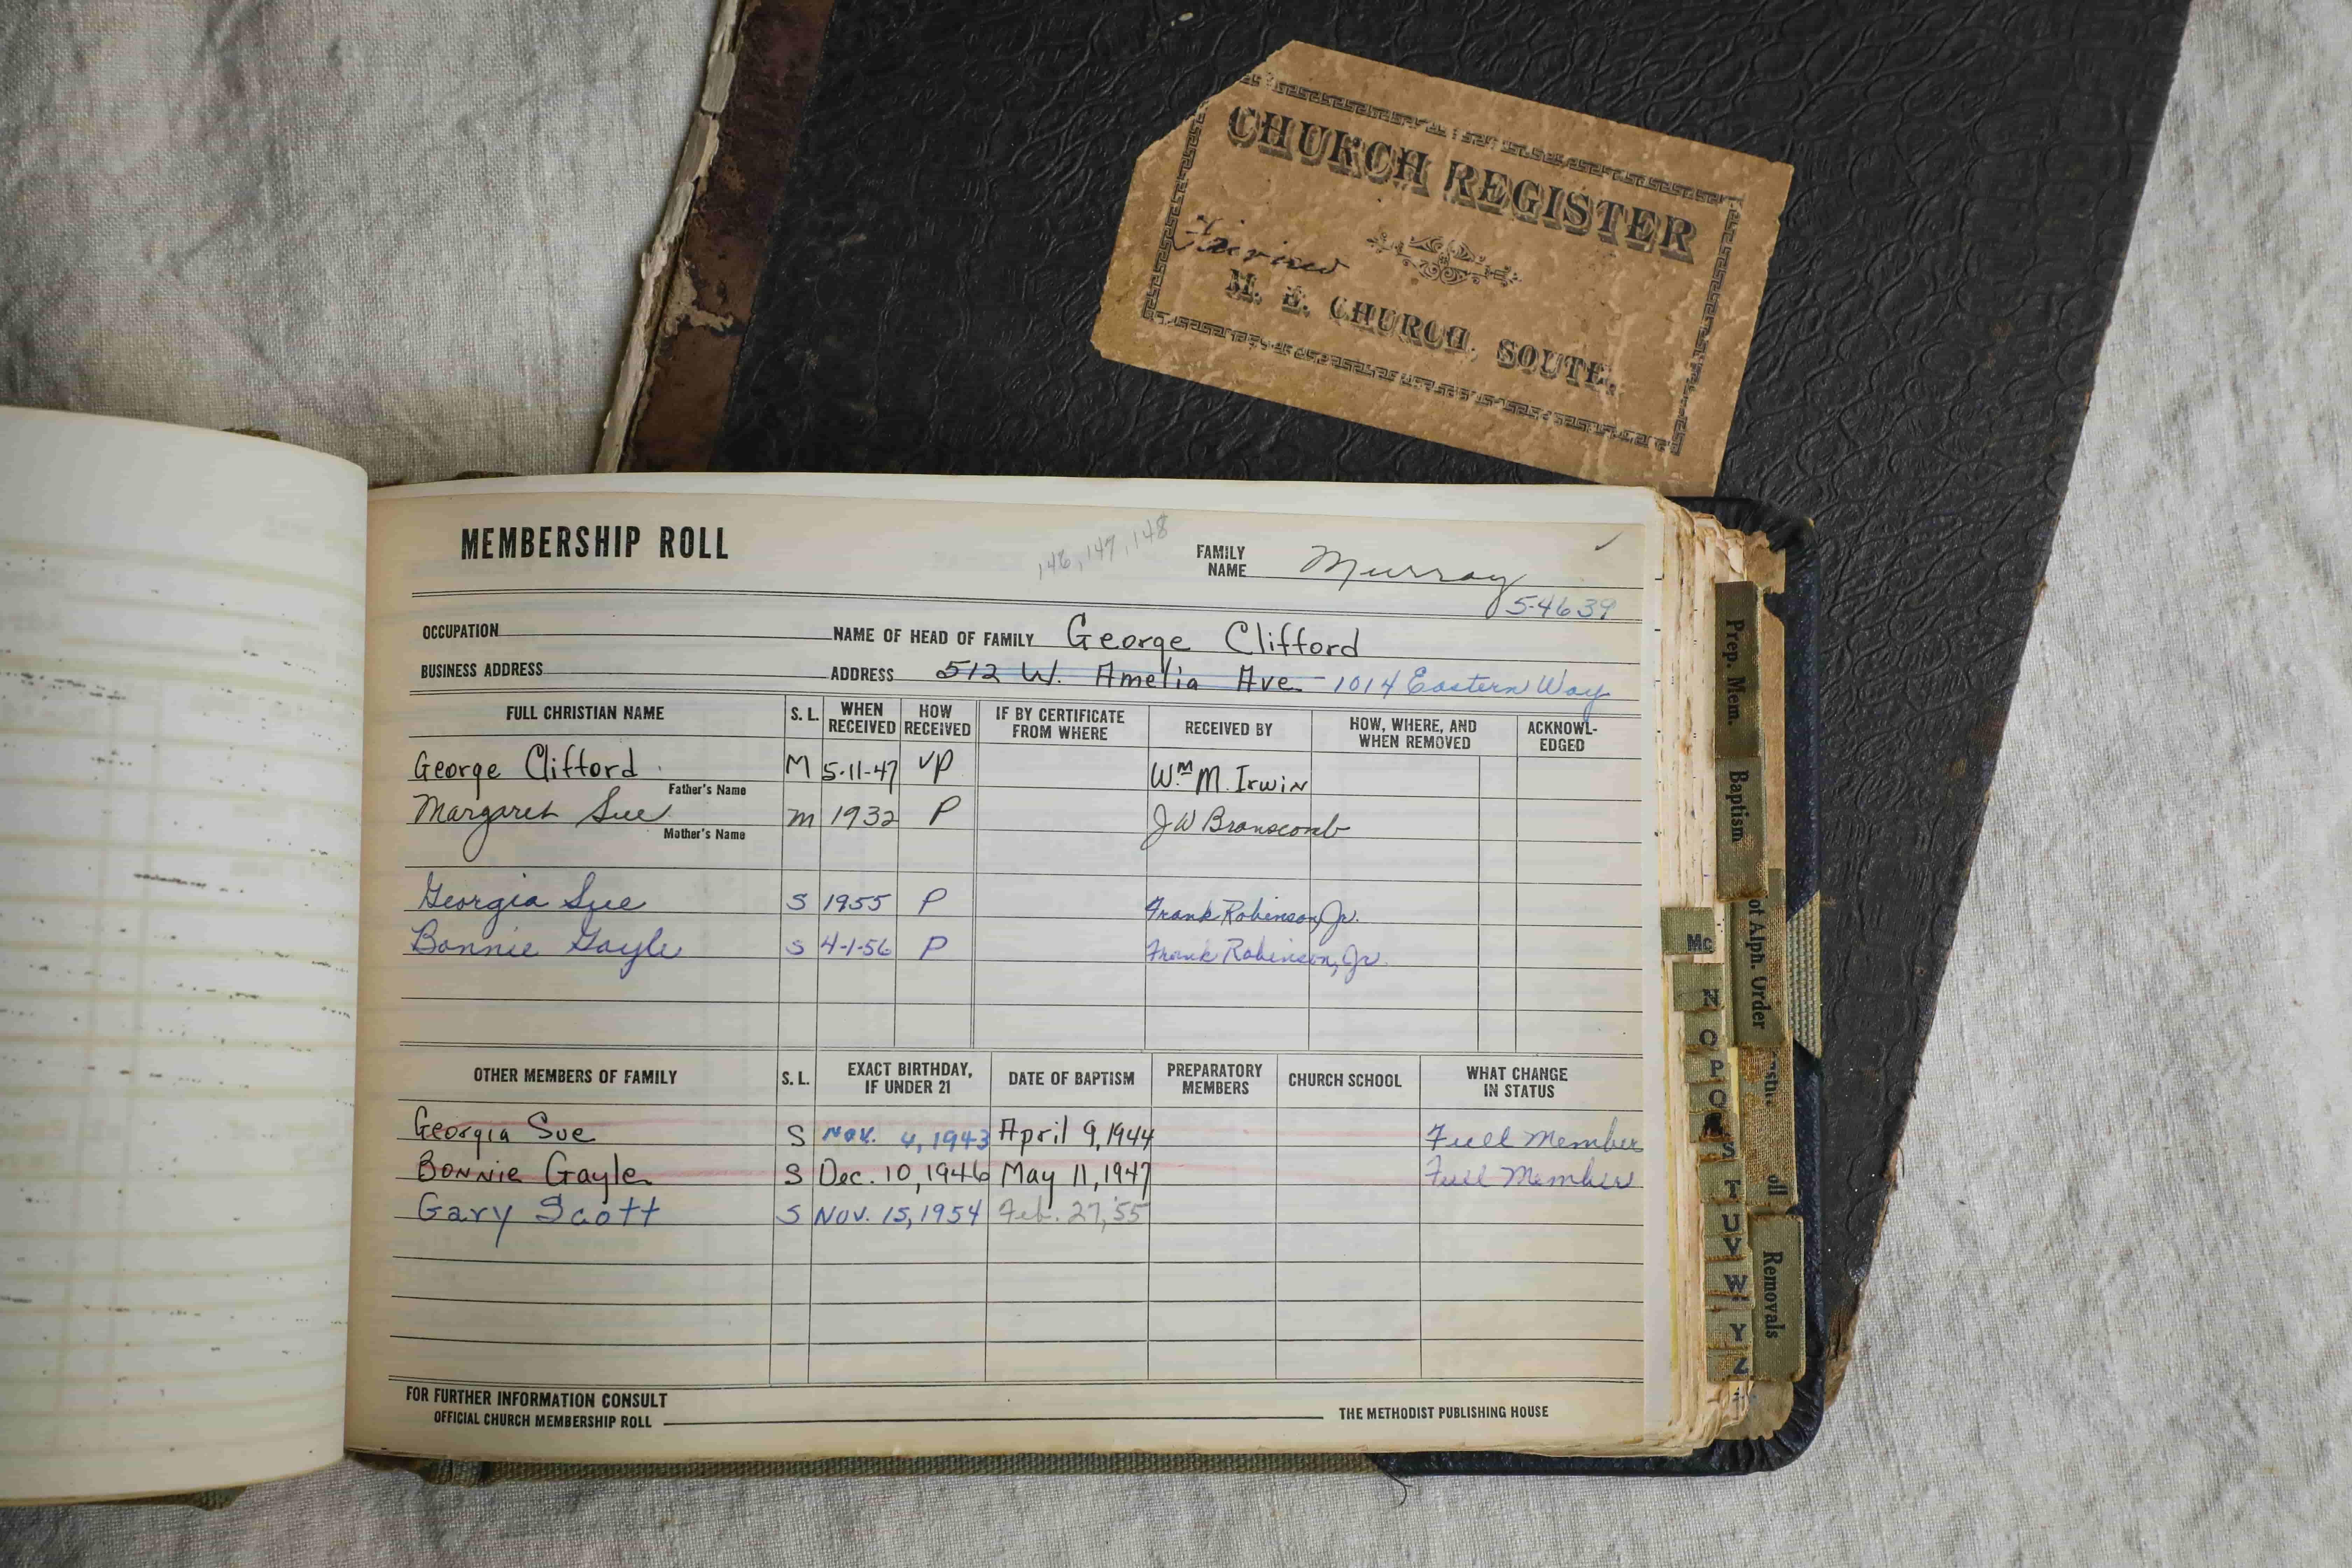 CHURCH REGISTER
M. E. CHURCH, SOUTH.
MEMBERSHIP ROLL
146, 147, 148
FAMILY NAME Murray
5-4639
OCCUPATION NAME OF HEAD OF FAMILY George Clifford
BUSINESS ADDRESS ADDRESS 512 W. Amelia Ave. 1014 Eastern Way
FULL CHRISTIAN NAME S. L. WHEN RECEIVED HOW RECEIVED IF BY CERTIFICATE FROM WHERE RECEIVED BY HOW, WHERE, AND WHEN REMOVED ACKNOWL-EDGED
George Clifford M 5-11-47 VP Wm M. Irwin
Father's Name
Margaret Sue m 1932 P J W Branscomb
Mother's Name
Georgia Sue S 1955 P Frank Robinson, Jr.
Bonnie Gayle S 4-1-56 P Frank Robinson, Jr.
OTHER MEMBERS OF FAMILY S. L. EXACT BIRTHDAY, IF UNDER 21 DATE OF BAPTISM PREPARATORY MEMBERS CHURCH SCHOOL WHAT CHANGE IN STATUS
Georgia Sue S Nov. 4, 1943 April 9, 1944 Full Member
Bonnie Gayle S Dec. 10, 1946 May 11, 1947 Full Member
Gary Scott S Nov. 15, 1954 Feb. 27, '55
FOR FURTHER INFORMATION CONSULT
OFFICIAL CHURCH MEMBERSHIP ROLL THE METHODIST PUBLISHING HOUSE
Prep. Mem.
Baptism
ot Alph. Order
oll
Removals
Mc
N
O
P
Q
S
T
U
V
W
Y
Z